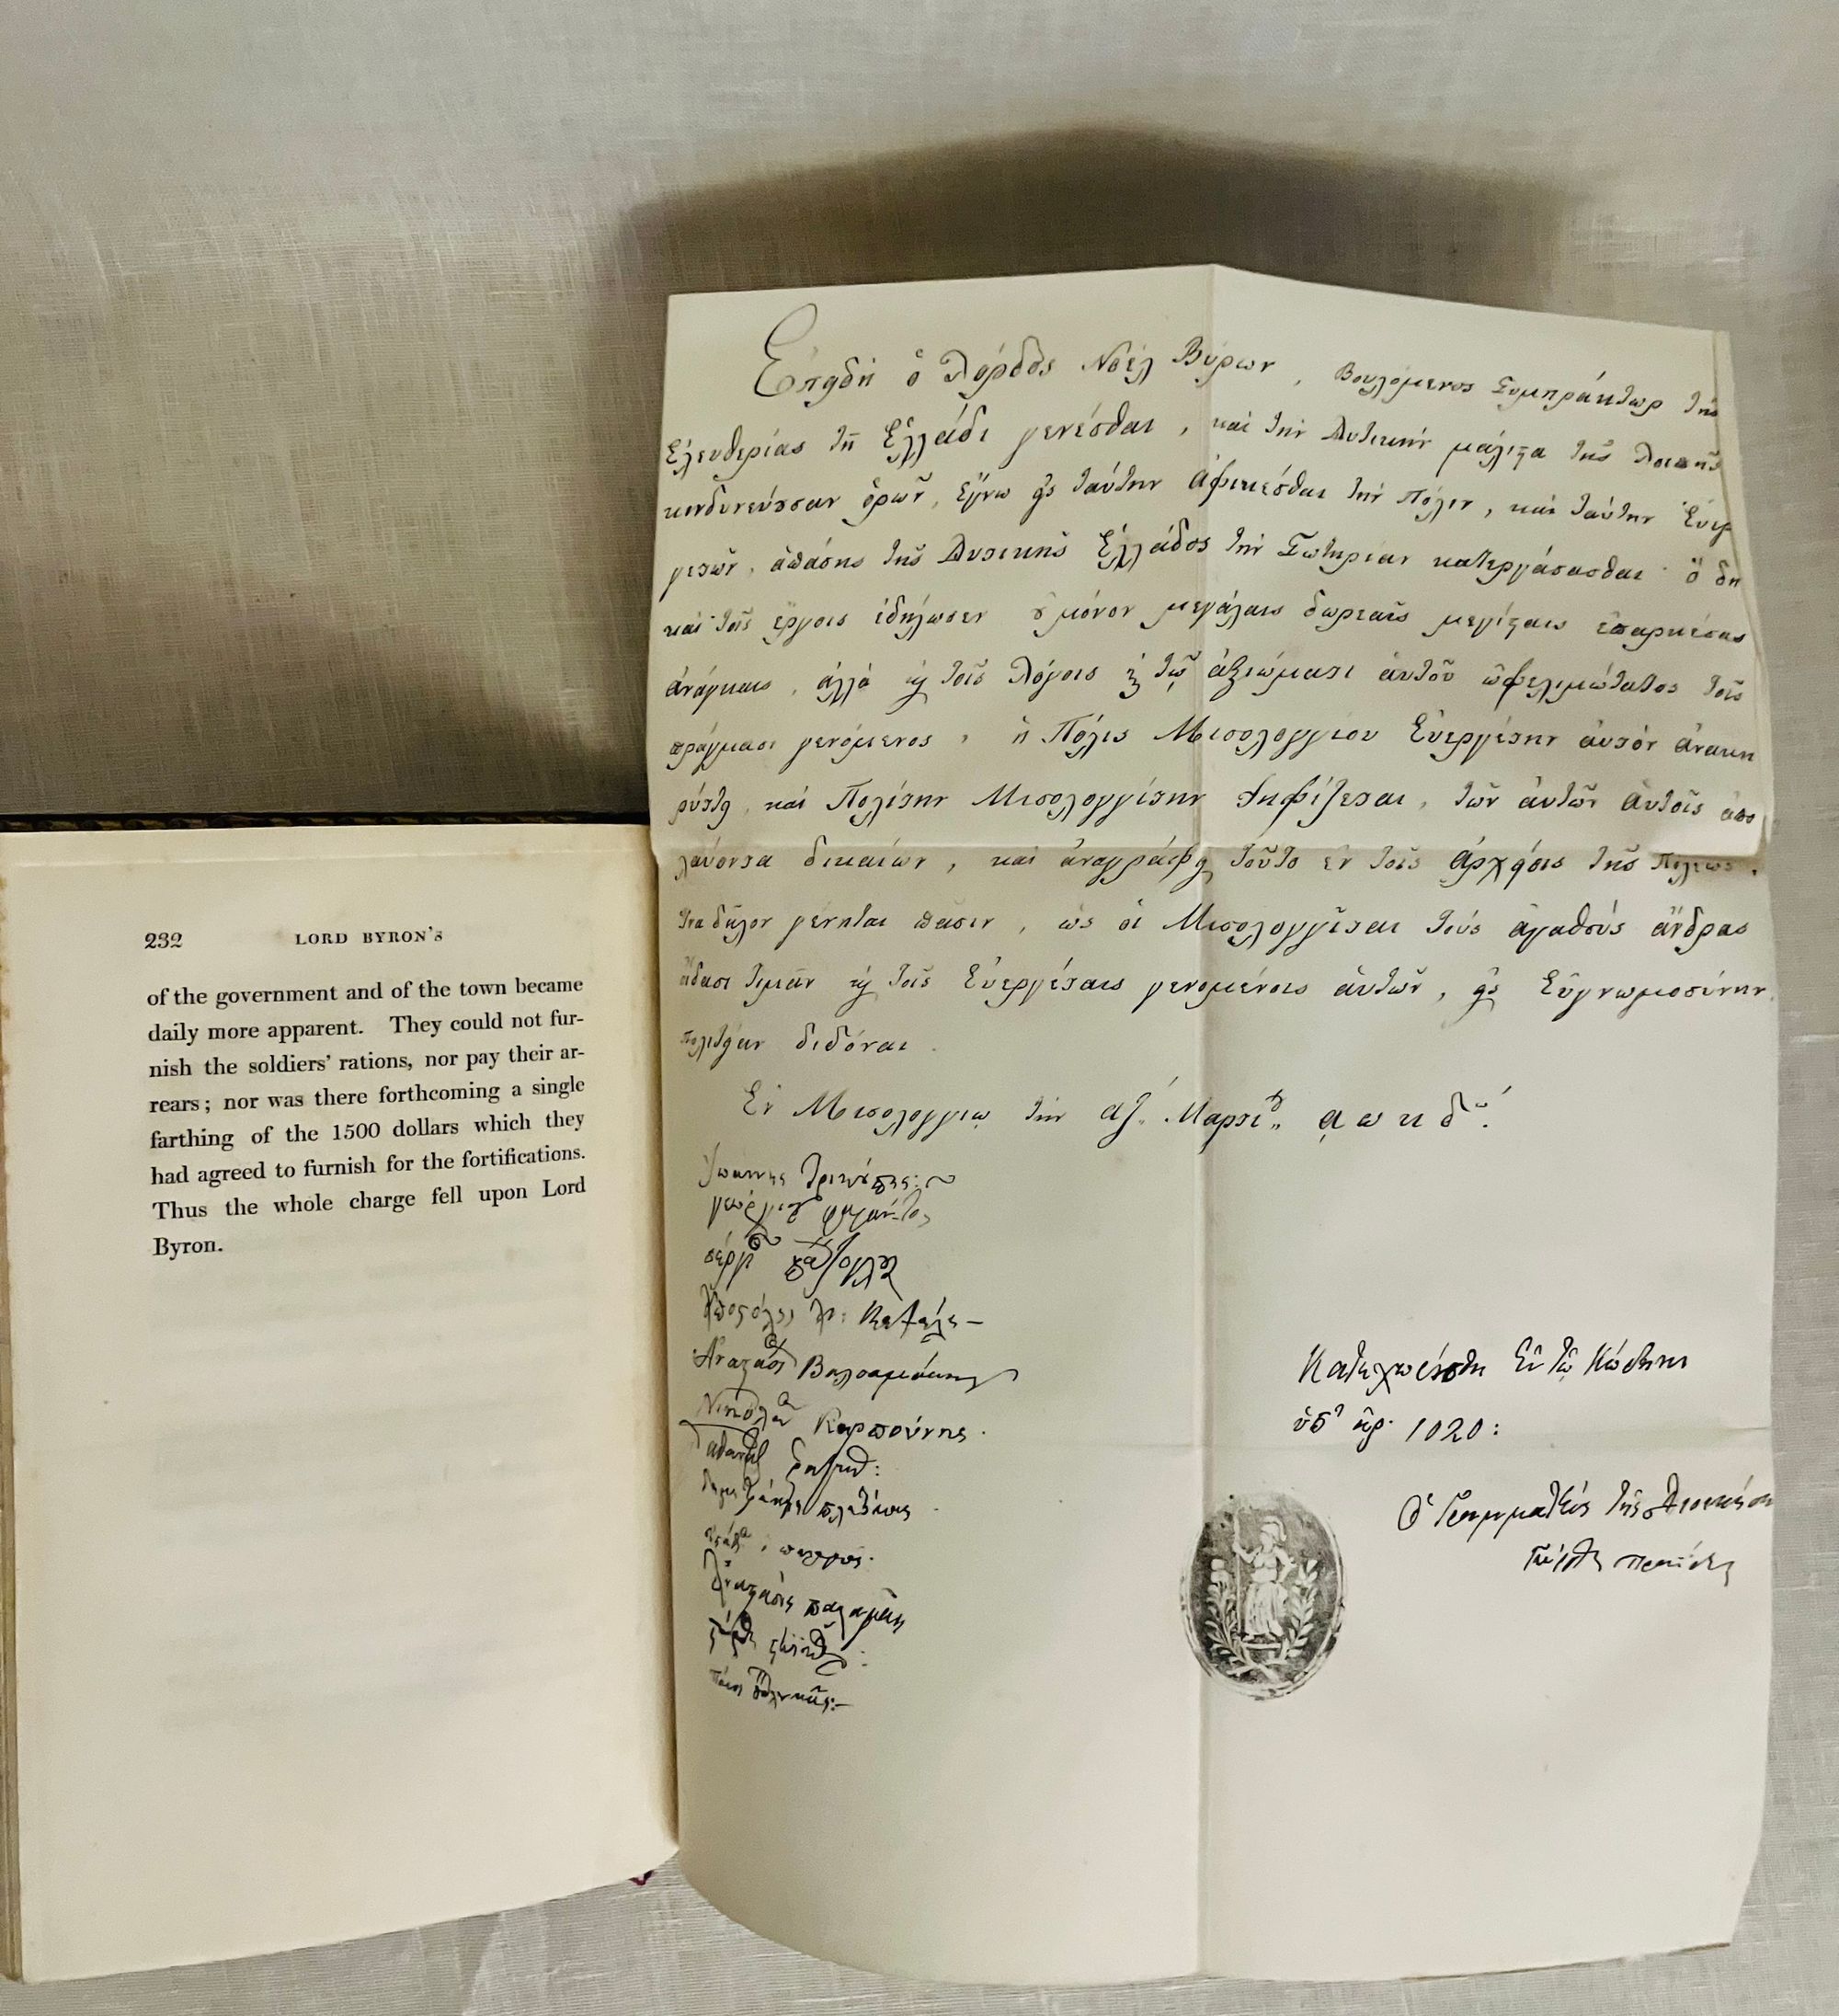 232 LORD BYRON'S
of the government and of the town became
daily more apparent. They could not fur-
nish the soldiers' rations, nor pay their ar-
rears; nor was there forthcoming a single
farthing of the 1500 dollars which they
had agreed to furnish for the fortifications.
Thus the whole charge fell upon Lord
Byron.
Ἐπειδή ὁ Λόρδος Νοέλ Βύρων, Βουλόμενος Συμπράκτωρ τῆς
Ἐλευθερίας τῇ Ἑλλάδι γενέσθαι, καί τήν Δυτικήν μάλιστα τῆς Λοιπῆς
κινδυνεύουσαν ὁρῶν, ἔγνω εἰς ταύτην ἀφικέσθαι τήν Πόλιν, καί ταύτην Εὐερ
γετῶν, ἁπάσης τῆς Δυτικῆς Ἑλλάδος τήν Σωτηρίαν κατεργάσασθαι· ὅ δη
καί τοῖς ἔργοις ἐδήλωσεν οὐ μόνον μεγάλαις δωρεαῖς μεγίσταις ἐπαρκέσας
ἀνάγκαις, ἀλλά καί τοῖς Λόγοις καί τῷ ἀξιώματι αὐτοῦ ὠφελιμώτατος τοῖς
πράγμασι γενόμενος, ἡ Πόλις Μισολογγίου Εὐεργέτην αὐτόν ἀνακη
ρύττει, καί Πολίτην Μισολογγίτην Ψηφίζεται, τῶν αὐτῶν αὐτοῖς ἀπο
λαύοντα δικαίων, καί ἀναγράφει τοῦτο ἐν τοῖς ἀρχείοις τῆς Πόλεως,
ἵνα δῆλον γένηται πᾶσιν, ὡς οἱ Μισολογγῖται τούς ἀγαθούς ἄνδρας
οἴδασι τιμᾶν καί τοῖς Εὐεργέταις γενομένοις αὐτῶν, εἰς Εὐγνωμοσύνην
πολιτείαν διδόναι.
Ἐν Μισολογγίῳ τήν αζ. Μαρτί αωκδου.
Ἰωάννης Τρικούπης
γεώργιος
Ἀναστάσιος Βαλσαμάκης
Νικόλαος Καρπούνης.
Ἀναστάσις παλαμᾶς
Κατεχωρίσθη Ἐν τῷ Κώδικι
ὑπ' ἀρ. 1020:
Ὁ Γραμματεύς τῆς Διοικήσεως